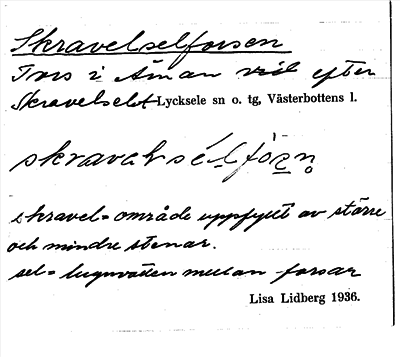 Skravelselforsen
Fors i Åman vid efter
Skravelselet Lycksele sn o. tg, Västerbottens l.
skravel= område uppfyllt av större
och mindre stenar.
sel= lugnvatten mellan forsar
Lisa Lidberg 1936.